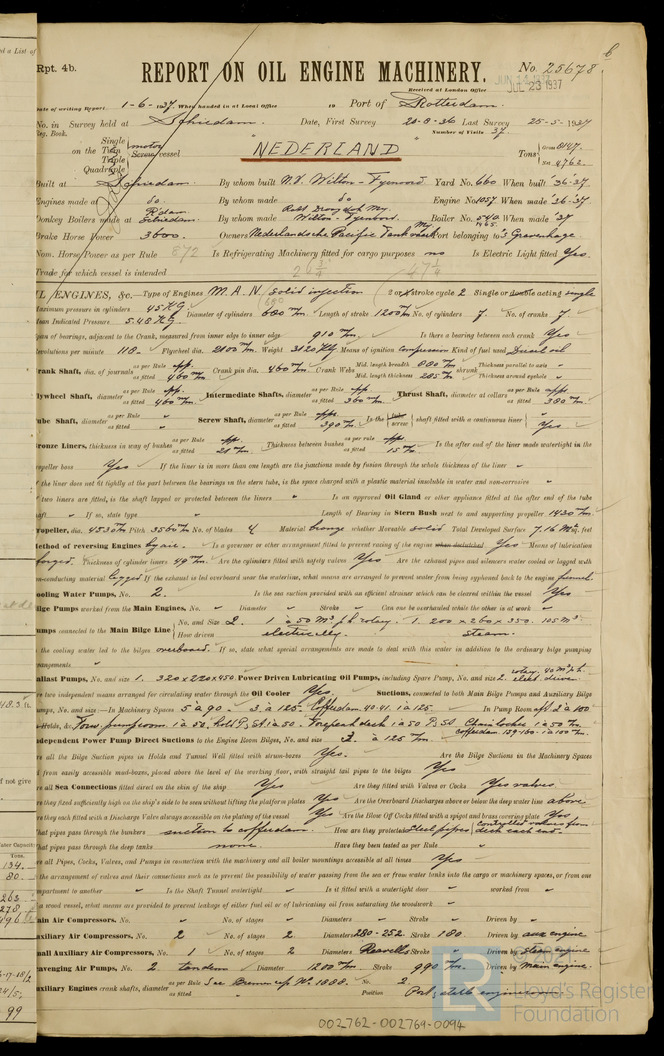 Rpt. 4b.
REPORT ON OIL ENGINE MACHINERY.
No. 25678
JUL 23 1937
Received at London Office
Date of writing Report 1-6-1937. When handed in at Local Office 19 Port of Rotterdam.
No. in Survey held at Schiedam. Date, First Survey 20-8-36 Last Survey 25-5-1937
Reg. Book. Number of Visits 37.
Single
on the Twin
Triple
Quadruple
motor
Screw vessel
"NEDERLAND"
Tons Gross 8147.
Net 4762.
Built at Schiedam. By whom built N.V. Wilton-Fijenoord Yard No. 660 When built '36-37
Engines made at do. By whom made do Engine No. 1057 When made '36-37
Donkey Boilers made at Schiedam. By whom made Wilton-Fijenoord. Boiler No. 540 When made '37
Brake Horse Power 3600. Owners Nederlandsche Pacific Tankvaart My Port belonging to 's Gravenhage.
Nom. Horse Power as per Rule 872 Is Refrigerating Machinery fitted for cargo purposes no Is Electric Light fitted Yes.
Trade for which vessel is intended
OIL ENGINES, &c. Type of Engines M.A.N. solid injection 2 or 4 stroke cycle 2. Single or double acting single
Maximum pressure in cylinders 45 KG. Diameter of cylinders 680 m/m. Length of stroke 1200 m/m No. of cylinders 7 No. of cranks 7
Mean Indicated Pressure 5.48 KG.
Span of bearings, adjacent to the Crank, measured from inner edge to inner edge 910 m/m. Is there a bearing between each crank Yes
Revolutions per minute 118. Flywheel dia. 2100 m/m. Weight 3120 Kg Means of ignition compression Kind of fuel used Diesel oil
Crank Shaft, dia. of journals as per Rule app. as fitted 460 m/m. Crank pin dia. 460 m/m. Crank Webs Mid. length breadth 880 m/m Thickness parallel to axis
Mid. length thickness 285 m/m shrunk Thickness around eyehole
Flywheel Shaft, diameter as per Rule app. as fitted 460 m/m. Intermediate Shafts, diameter as per Rule app. as fitted 360 m/m. Thrust Shaft, diameter at collars as per Rule app. as fitted 380 m/m.
Tube Shaft, diameter as per Rule as fitted Screw Shaft, diameter as per Rule app. as fitted 390 m/m. Is the screw shaft fitted with a continuous liner Yes
Bronze Liners, thickness in way of bushes as per Rule app. as fitted 21 m/m. Thickness between bushes as per Rule app. as fitted 15 m/m. Is the after end of the liner made watertight in the
propeller boss Yes If the liner is in more than one length are the junctions made by fusion through the whole thickness of the liner "
If the liner does not fit tightly at the part between the bearings in the stern tube, is the space charged with a plastic material insoluble in water and non-corrosive "
If two liners are fitted, is the shaft lapped or protected between the liners " Is an approved Oil Gland or other appliance fitted at the after end of the tube
shaft " If so, state type " Length of Bearing in Stern Bush next to and supporting propeller 1430 m/m.
Propeller, dia. 4530 m/m Pitch 3560 m/m No. of blades 4 Material bronze whether Moveable solid Total Developed Surface 7.16 M² sq. feet
Method of reversing Engines by air. Is a governor or other arrangement fitted to prevent racing of the engine when declutched Yes Means of lubrication
forced. Thickness of cylinder liners 49 m/m. Are the cylinders fitted with safety valves Yes Are the exhaust pipes and silencers water cooled or lagged with
non-conducting material lagged If the exhaust is led overboard near the waterline, what means are arranged to prevent water from being syphoned back to the engine funnel.
Cooling Water Pumps, No. 2. Is the sea suction provided with an efficient strainer which can be cleared within the vessel Yes
Bilge Pumps worked from the Main Engines, No. " Diameter " Stroke " Can one be overhauled while the other is at work "
Pumps connected to the Main Bilge Line No. and Size 2. 1 à 50 M³ p.h. rotary. 1. 200 x 260 x 350. 105 M³.
How driven electrically. steam.
Is the cooling water led to the bilges overboard. If so, state what special arrangements are made to deal with this water in addition to the ordinary bilge pumping
arrangements "
Ballast Pumps, No. and size 1. 320x220x450. Power Driven Lubricating Oil Pumps, including Spare Pump, No. and size 2. rotary. 40 M³ p.h. elect. driven
Are two independent means arranged for circulating water through the Oil Cooler Yes. Suctions, connected to both Main Bilge Pumps and Auxiliary Bilge
Pumps, No. and size:—In Machinery Spaces 5 à 90. 3 à 125. Cofferdam. 40-41. 1 à 125. In Pump Room aft 2 à 100
Holds, &c. Fore pumproom 1 à 50. hold P. & S. 1 à 50. Forepeak deck 1 à 50 P. 50 Chain locker 1 à 50 m/m.
cofferdam 159-160. 1 à 100 m/m.
Independent Power Pump Direct Suctions to the Engine Room Bilges, No. and size 2. à 125 m/m.
Are all the Bilge Suction pipes in Holds and Tunnel Well fitted with strum-boxes Yes. Are the Bilge Suctions in the Machinery Spaces
led from easily accessible mud-boxes, placed above the level of the working floor, with straight tail pipes to the bilges Yes
Are all Sea Connections fitted direct on the skin of the ship Yes Are they fitted with Valves or Cocks Yes valves.
Are they fixed sufficiently high on the ship's side to be seen without lifting the platform plates Yes Are the Overboard Discharges above or below the deep water line above
Are they each fitted with a Discharge Valve always accessible on the plating of the vessel Yes Are the Blow Off Cocks fitted with a spigot and brass covering plate Yes
What pipes pass through the bunkers suction to cofferdam. How are they protected steel pipes controlled valves from deck each end.
What pipes pass through the deep tanks none. Have they been tested as per Rule "
Are all Pipes, Cocks, Valves, and Pumps in connection with the machinery and all boiler mountings accessible at all times Yes
Is the arrangement of valves and their connections such as to prevent the possibility of water passing from the sea or from water tanks into the cargo or machinery spaces, or from one
compartment to another " Is the Shaft Tunnel watertight " Is it fitted with a watertight door " worked from "
If a wood vessel, what means are provided to prevent leakage of either fuel oil or of lubricating oil from saturating the woodwork "
Main Air Compressors, No. " No. of stages " Diameters " Stroke " Driven by "
Auxiliary Air Compressors, No. 2 No. of stages 2. Diameters 280-252. Stroke 180. Driven by aux engine
Small Auxiliary Air Compressors, No. 1 No. of stages 2 Diameters Reavell's Stroke " Driven by steam engine
Scavenging Air Pumps, No. 2. tandem Diameter 1200 m/m. Stroke 990 m/m. Driven by Main engine.
Auxiliary Engines crank shafts, diameter as per Rule See Bremen rep No. 1088. No. 2
as fitted " Position
002762-002769-0094
© 2021
Lloyd's Register
Foundation